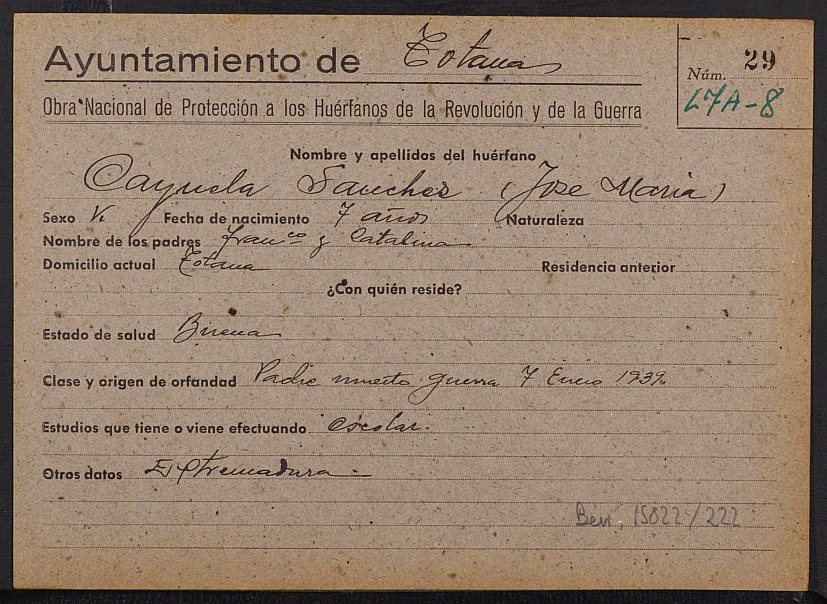 Ayuntamiento de Totana
Núm. 29
L7A-8
Obra Nacional de Protección a los Huérfanos de la Revolución y de la Guerra
Nombre y apellidos del huérfano
Cayuela Sanchez (Jose Maria)
Sexo V. Fecha de nacimiento 7 años Naturaleza
Nombre de los padres Franco y Catalina
Domicilio actual Totana Residencia anterior
¿Con quién reside?
Estado de salud Buena
Clase y origen de orfandad Padre muerto guerra 7 Enero 1939
Estudios que tiene o viene efectuando escolar.
Otros datos Extremadura
15822/222